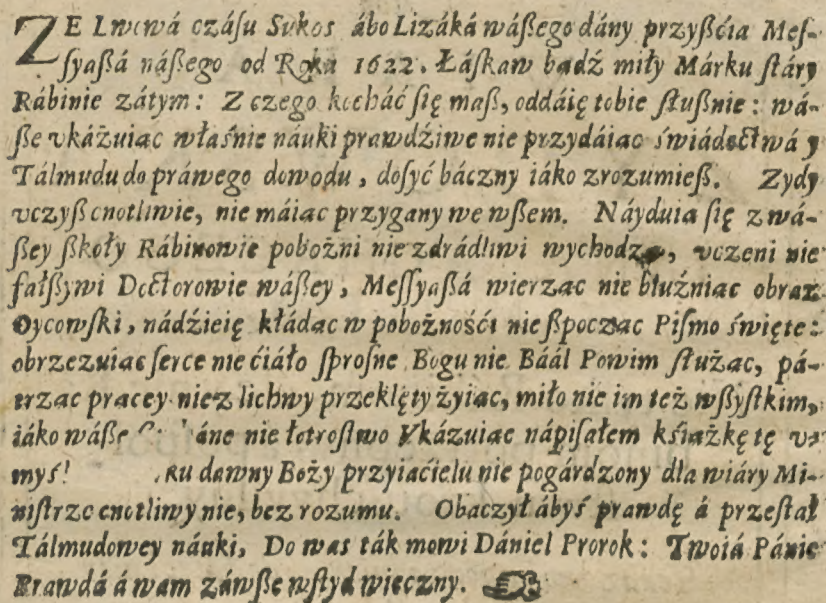 ZE Lwowá czáſu Sukos ábo Lizáká wáßego dány przyßćia Meſ-
ſyaßá náßego od Roku 1622. Łáſkaw bądź miły Márku ſtáry
Rábinie zátym: Z czego kocháć ſię maß, oddáię tobie ſłußnie: wá-
ße vkázuiąc właśnie náuki prawdźiwe nie przydáiąc świádectwá y
Tálmudu do práwego dowodu, doſyć báczny iáko zrozumieß. Zydy
vczyß cnotliwie, nie máiąc przygany we wßem. Náyduią ſię z wá-
ßey ßkoły Rábinowie pobożni nie zdrádliwi wychodzą, vczeni nie
fałßywi Doctorowie wáßey, Meſſyaßá wierząc nie bluźniąc obraz
Oycowſki, nádźieię kłádąc w pobożnośći nie ßpocząc Piſmo święte:
obrzezuiąc ſerce nie ćiáło ſproſne Bogu nie Báál Powim ſłużąc, pá-
trząc pracey niez lichwy przeklęty żyiąc, miło nie im też wßyſtkim,
iáko wáße áne nie łotroſtwo Vkázuiąc nápiſałem kśiążkę tę v-
myś! ku dawny Boży przyiaćielu nie pogárdzony dla wiáry Mi-
niſtrze cnotliwy nie, bez rozumu. Obaczył ábyś prawdę á przeſtał
Tálmudowey náuki, Do was ták mowi Dániel Prorok: Twoiá Pánie
Prawdá á wam záwße wſtyd wieczny.